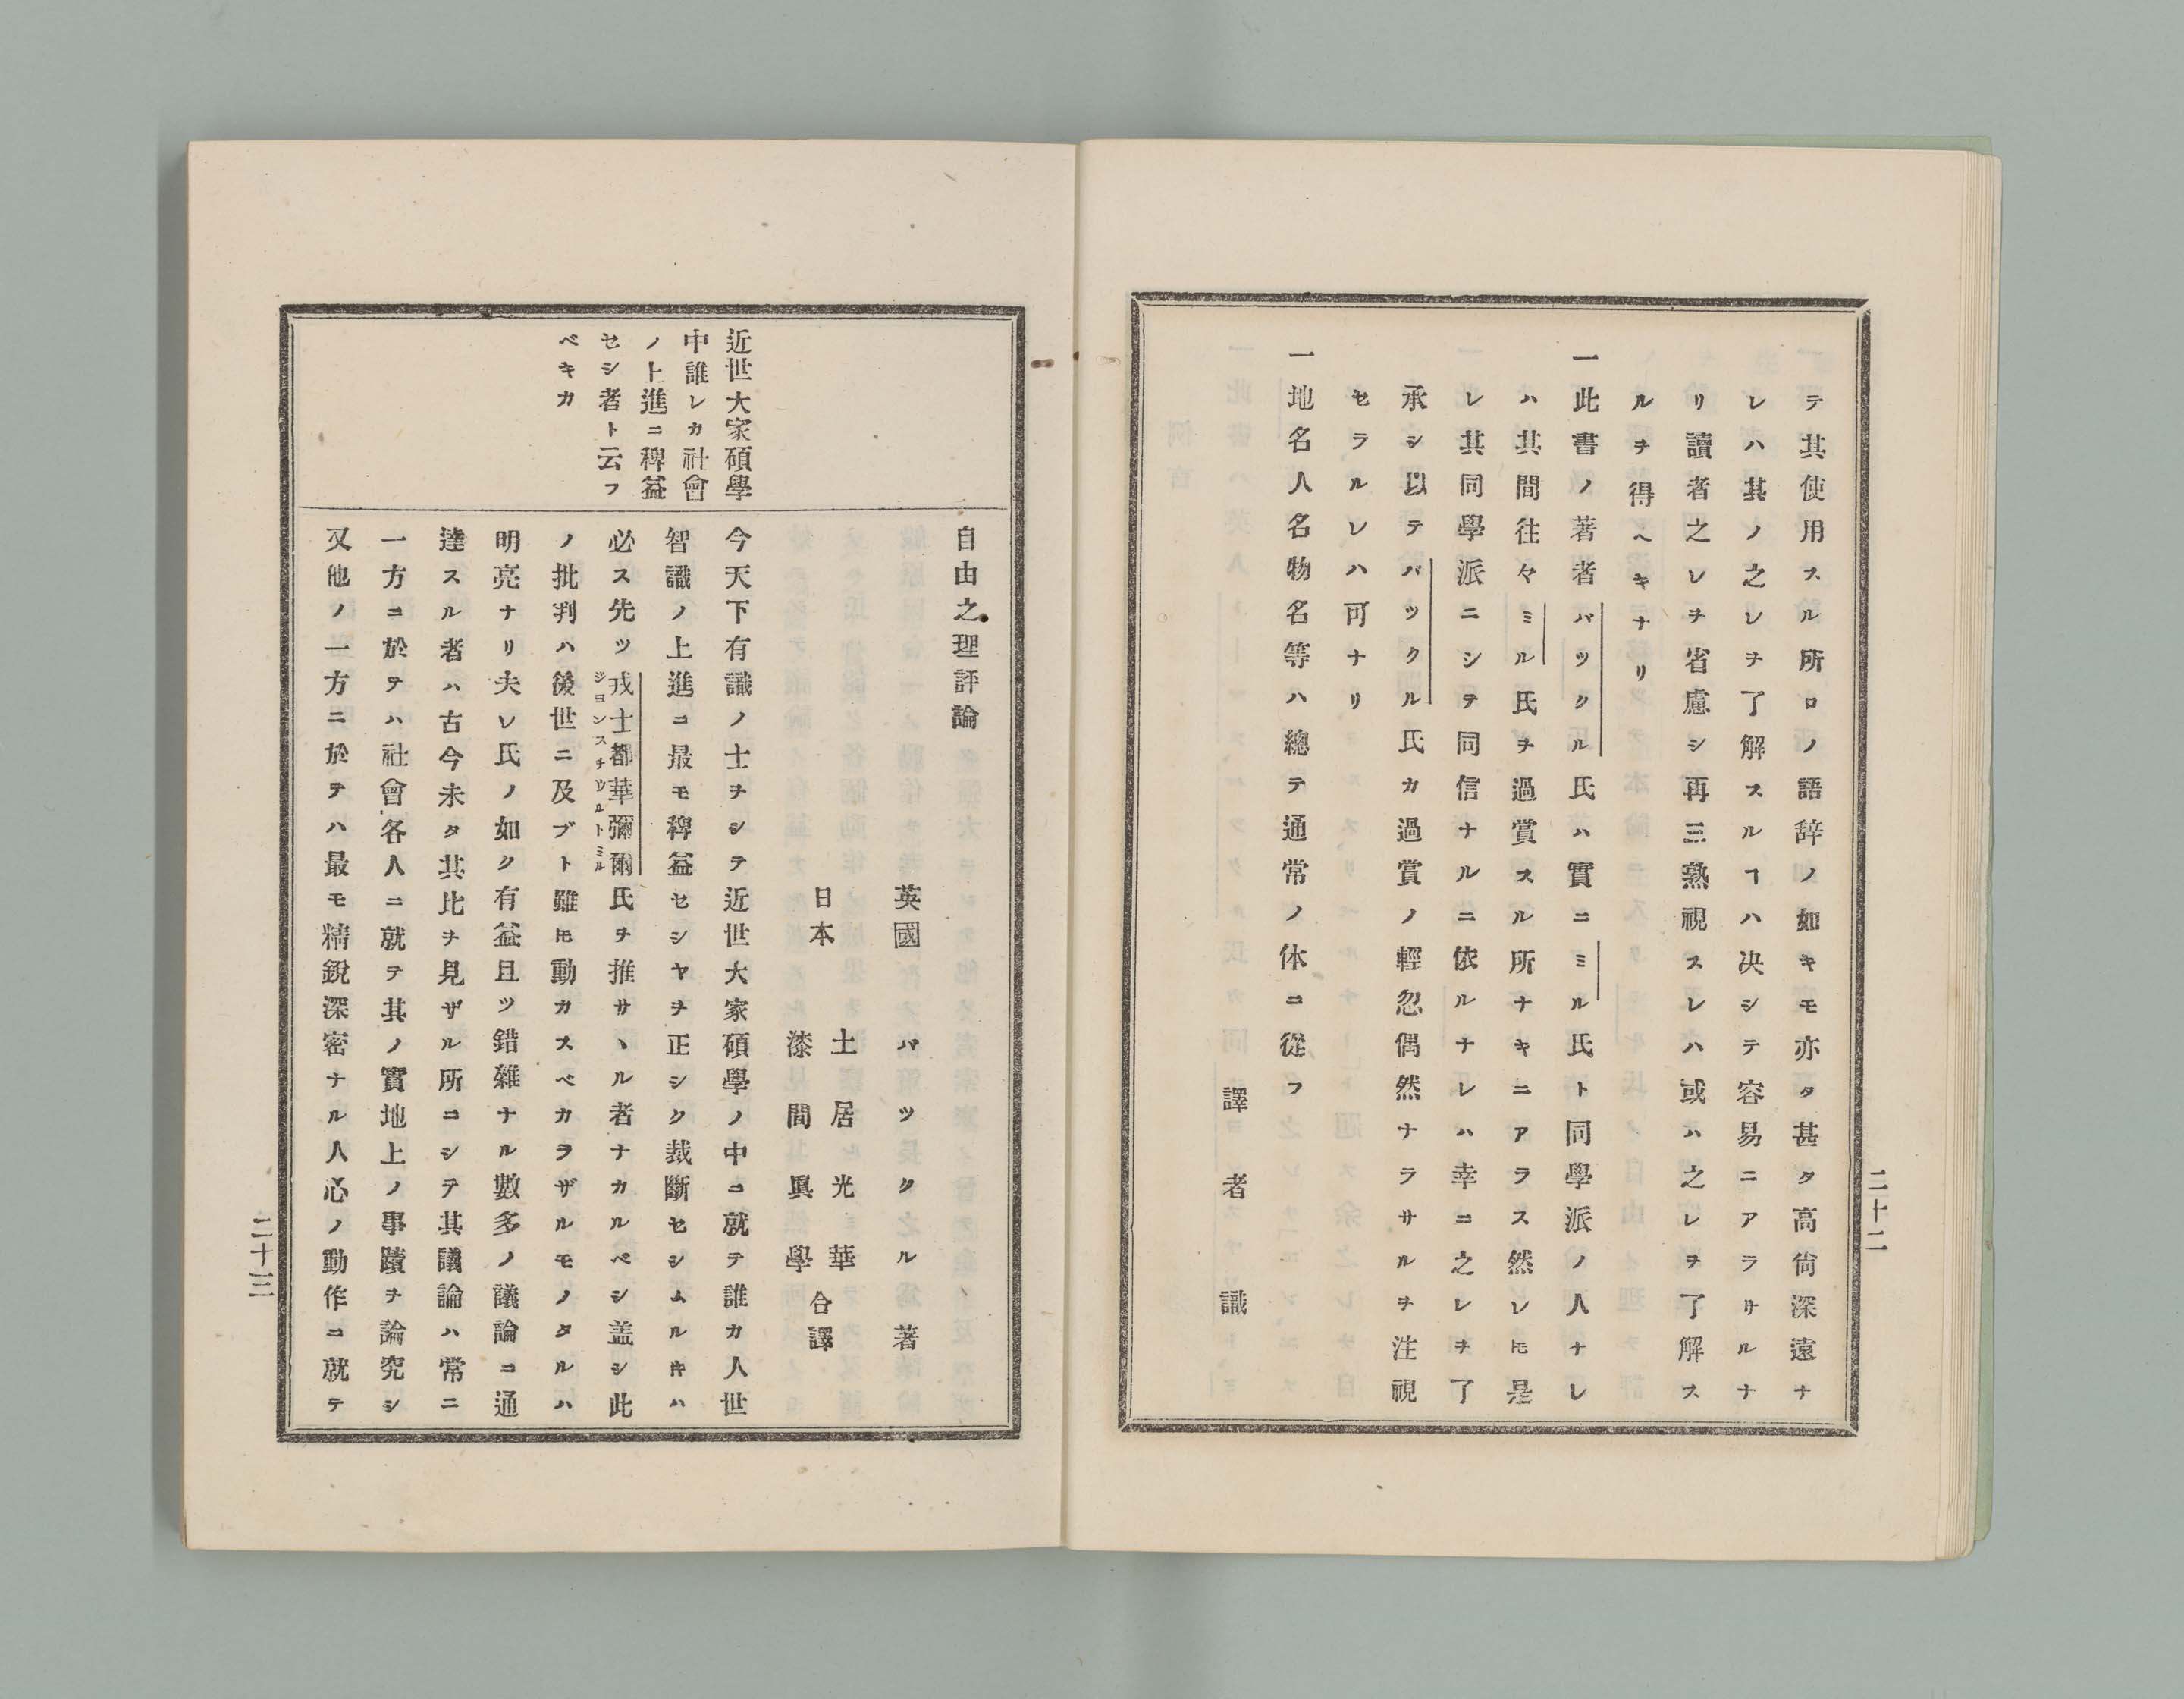 テ其使用スル所ロノ語辞ノ如キモ亦タ甚タ高尙深遠ナ
レハ其ノ之レヲ了解スルヿハ决シテ容易ニアラサルナ
リ讀者之レヲ省慮シ再三熟視スレハ或ハ之レヲ了解ス
ルヲ得ヘキナリ
一此書ノ著者バツクル氏ハ實ニミル氏ト同學派ノ人ナレ
ハ其間往々ミル氏ヲ過賞スル所ナキニアラス然レ𪜈是
レ其同學派ニシテ同信ナルニ依ルナレハ幸ニ之レヲ了
承シ以テバツクル氏カ過賞ノ輕忽偶然ナラサルヲ注視
セラルレハ可ナリ
一地名人名物名等ハ總テ通常ノ体ニ從フ
譯者識
二十二
自由之理評論
英國 バツクル之ル著
日本 土居光華
漆間眞學 合譯
近世大家碩學
中誰レカ社會
ノ上進ニ稗益
セシ者ト云フ
ベキカ
今天下有識ノ士ヲシテ近世大家碩學ノ中ニ就テ誰カ人世
智識ノ上進ニ最モ稗益セシヤヲ正シク裁斷セシムルキハ
必ス先ツ戎士都華彌爾氏ヲ推サヽル者ナカルベシ盖シ此
ジヨンスチウルトミル
ノ批判ハ後世ニ及ブト雖𪜈動カスベカラザルモノタルハ
明亮ナリ夫レ氏ノ如ク有益且ツ錯雜ナル數多ノ議論ニ通
達スル者ハ古今未タ其比ヲ見ザル所ニシテ其議論ハ常ニ
一方ニ於テハ社會各人ニ就テ其ノ實地上ノ事蹟ヲ論究シ
又他ノ一方ニ於テハ最モ精銳深密ナル人心ノ動作ニ就テ
二十三